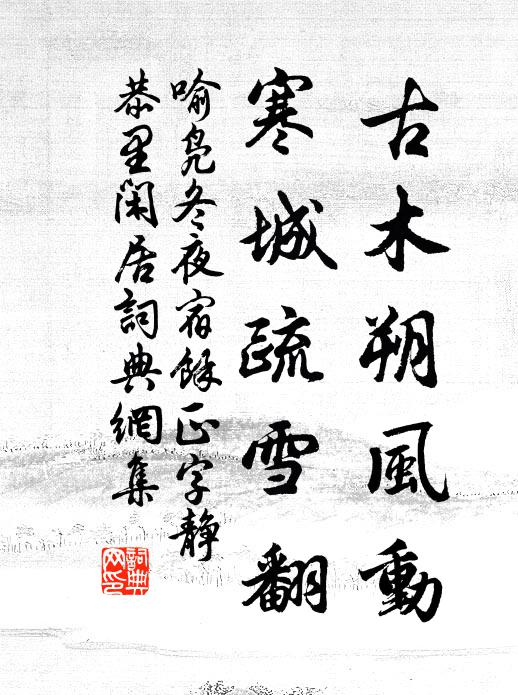 古木朔風動
寒城疏雪翻
喻鳧冬夜宿餘正字靜
恭里閑居詞典網集
詞典网印